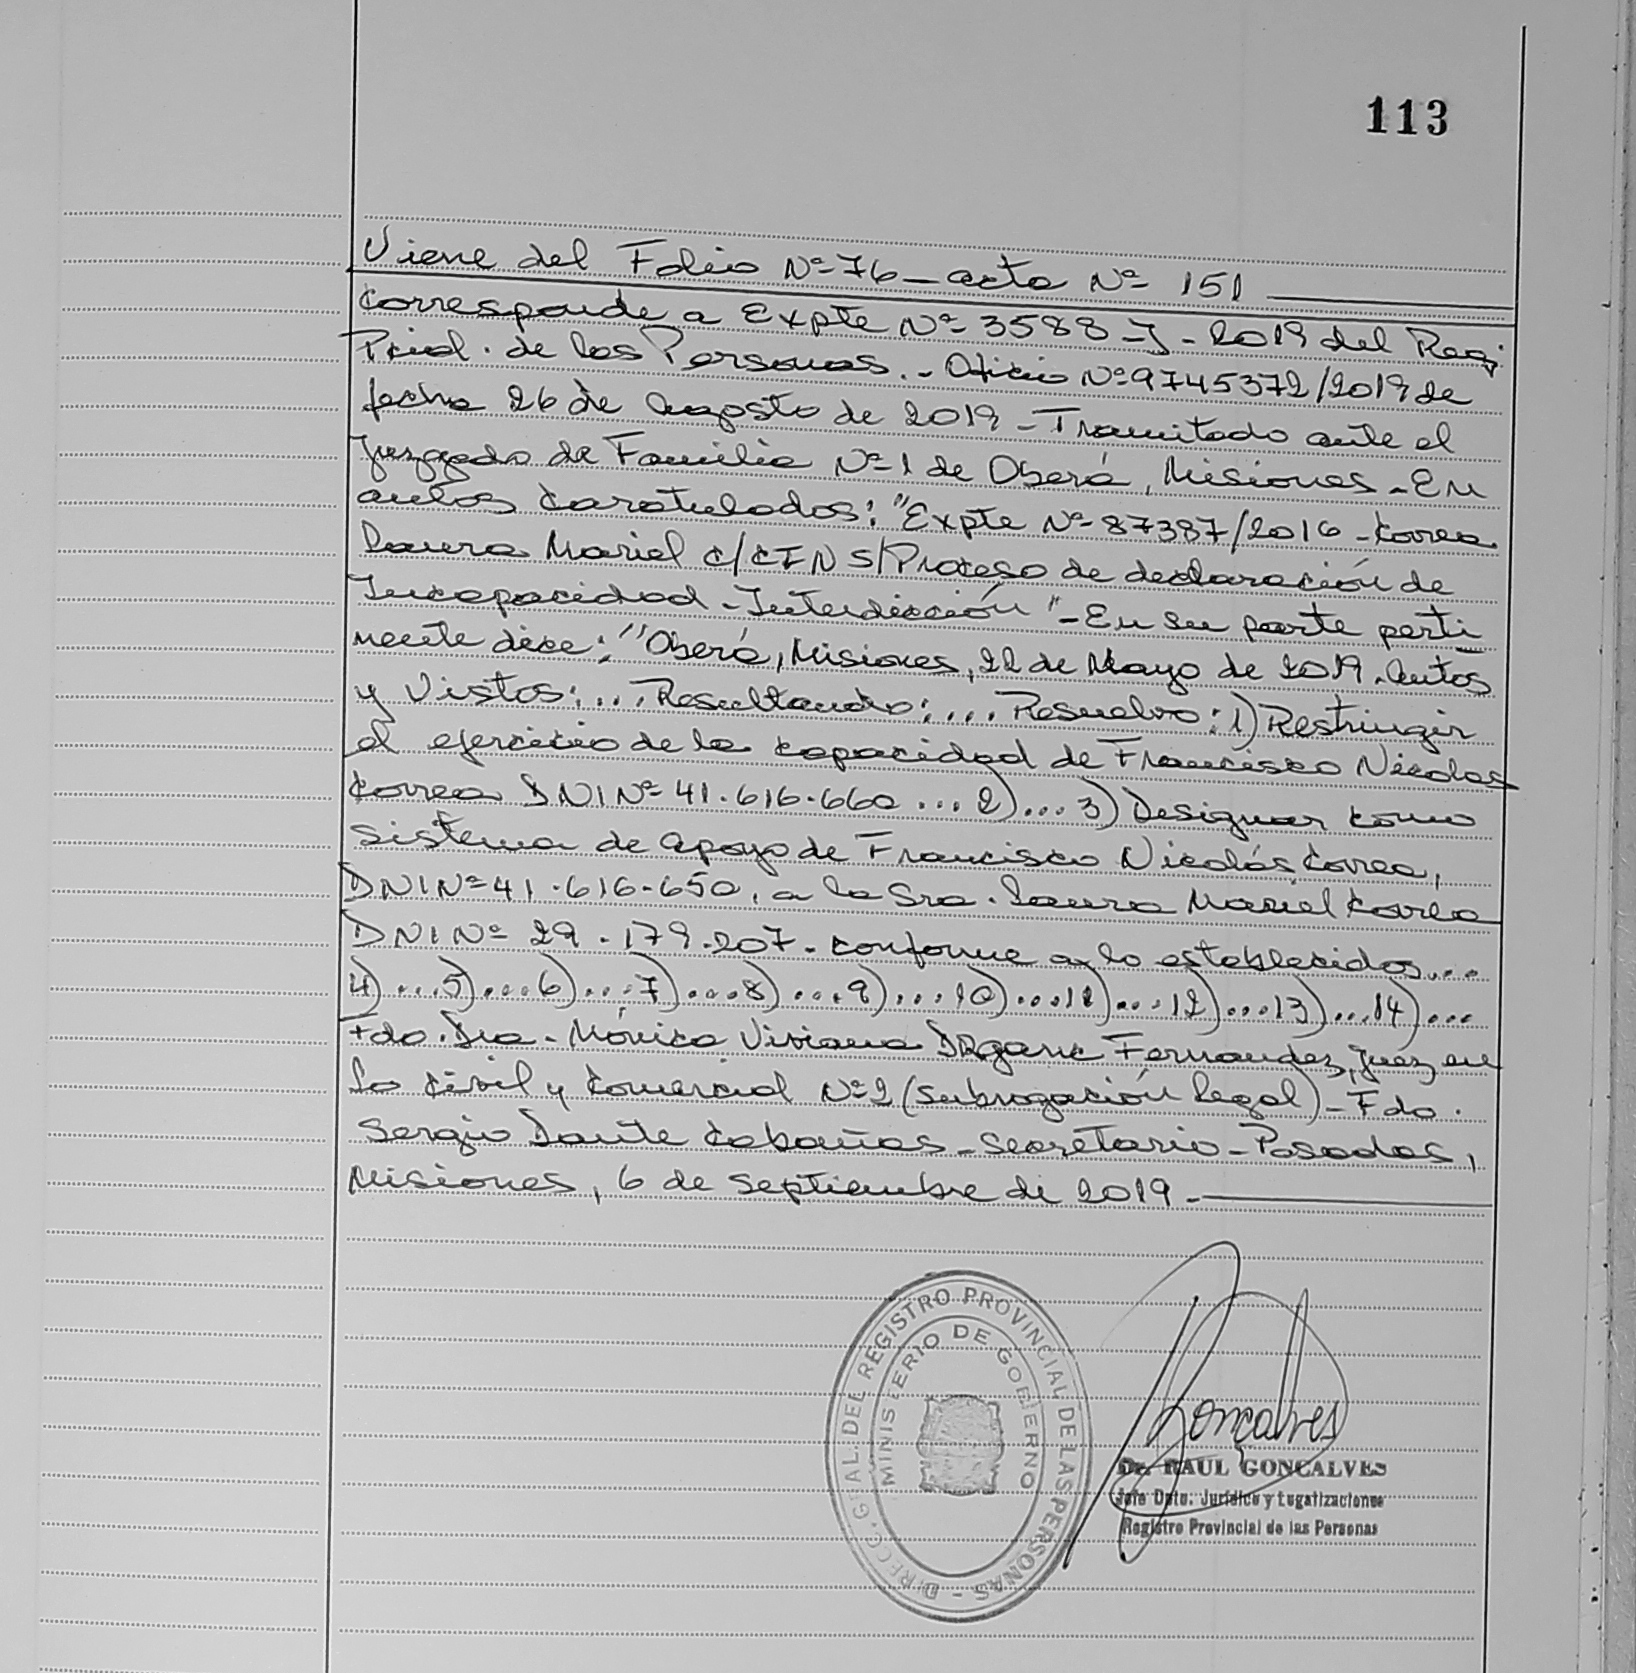 113
Viene del Folio Nº 76 - acta Nº 151
Corresponde a Expte Nº 3588-J-2019 del Reg.
Pcial. de las Personas.- Oficio Nº 9745372/2019 de
fecha 26 de Agosto de 2019 - Tramitado ante el
Juzgado de Familia Nº 1 de Oberá, Misiones - En
autos caratulados: "Expte Nº 87387/2016 - Correa
Laura Mariel c/CIN S/Proceso de declaración de
Incapacidad - Interdicción" - En su parte perti
nente dice: "Oberá, Misiones, 22 de Mayo de 2019. Autos
y Vistos: ... Resultando: ... Resuelvo: 1) Restringir
el ejercicio de la capacidad de Francisco Nicolas
Correa DNI Nº 41.616.660 ... 2) ... 3) Designar como
sistema de apoyo de Francisco Nicolás Correa,
DNI Nº 41.616.650, a la Sra. Laura Mariel Correa
DNI Nº 29.179.207. conforme a lo establecidos...
4) ... 5) ... 6) ... 7) ... 8) ... 9) ... 10) ... 11) ... 12) ... 13) ... 14) ...
Fdo. Dra. Mónica Viviana Fernandez, Juez en
lo Civil y Comercial Nº 2 (Subrogación legal) - Fdo.
Sergio Dante Cabañas - Secretario - Posadas,
Misiones, 6 de septiembre de 2019.-
DIRECC. GRAL. DEL REGISTRO PROVINCIAL DE LAS PERSONAS -
MINISTERIO DE GOBIERNO
Gonçalves
Dr. RAUL GONCALVES
Jefe Dpto. Jurídico y Legalizaciones
Registro Provincial de las Personas